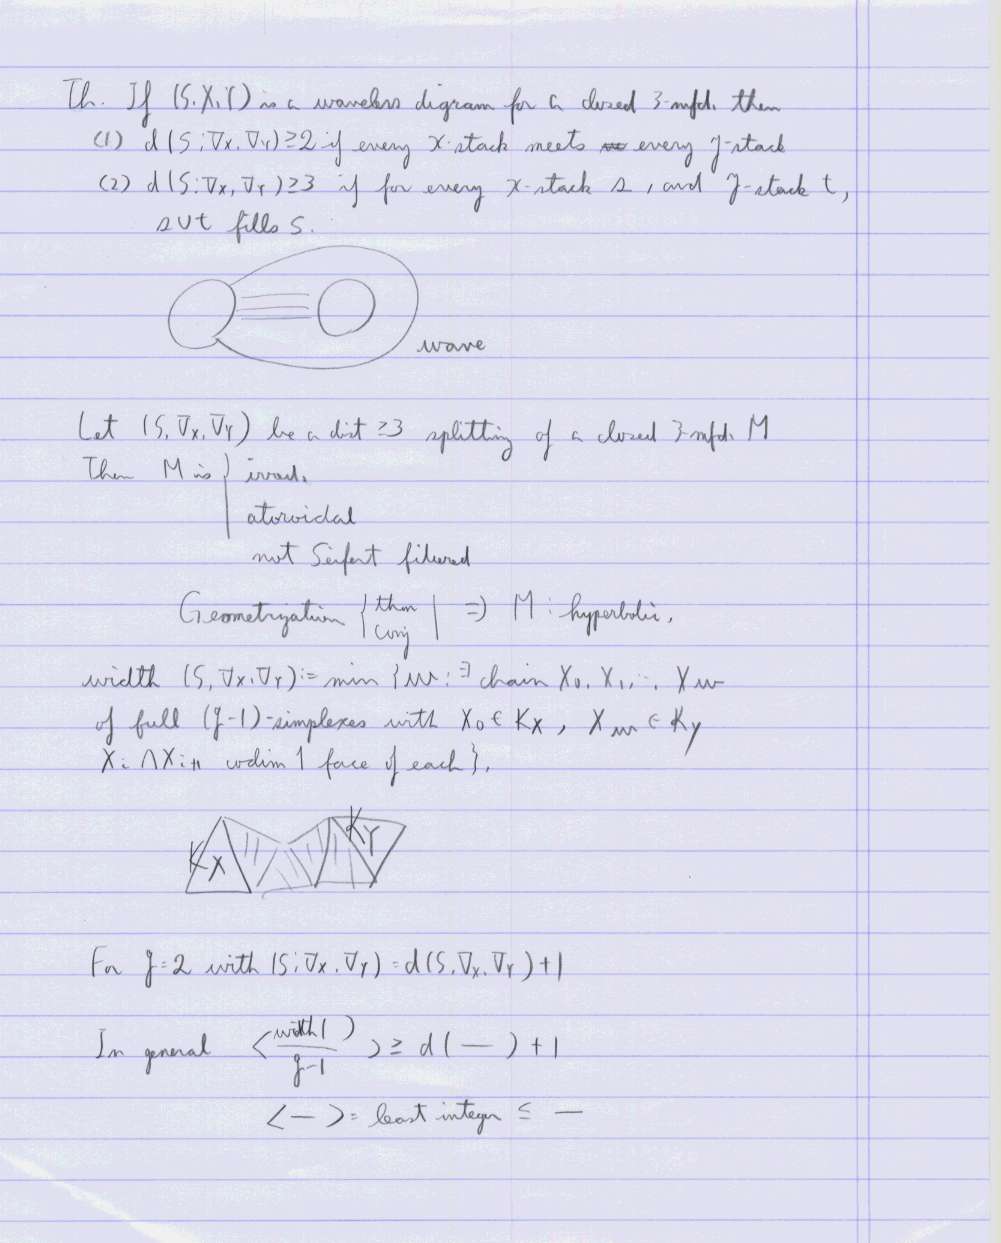 Th. If (S, X, Y) is a waveless digram for a closed 3-mfd. then
(1) d(S; V̄x, V̄y) ≥ 2 if every x-stack meets every y-stack
(2) d(S; V̄x, V̄y) ≥ 3 if for every x-stack s, and y-stack t,
s∪t fills S.
wave
Let (S, V̄x, V̄y) be a dist ≥3 splitting of a closed 3-mfd. M
Then M is { irred.
atoroidal
not Seifert fibered
Geometrization { thm
conj } ⇒ M : hyperbolic.
width (S, V̄x, V̄y) := min { w : ∃ chain X₀, X₁, …, Xw
of full (g-1)-simplexes with X₀ ∈ Kx, Xw ∈ Ky
Xi ∩ Xi+1 codim 1 face of each }.
Kx Ky
For g=2 with (S; V̄x, V̄y) = d(S, V̄x, V̄y) + 1
In general < width( ) / g-1 > ≥ d( — ) + 1
< — > = least integer ≤ —